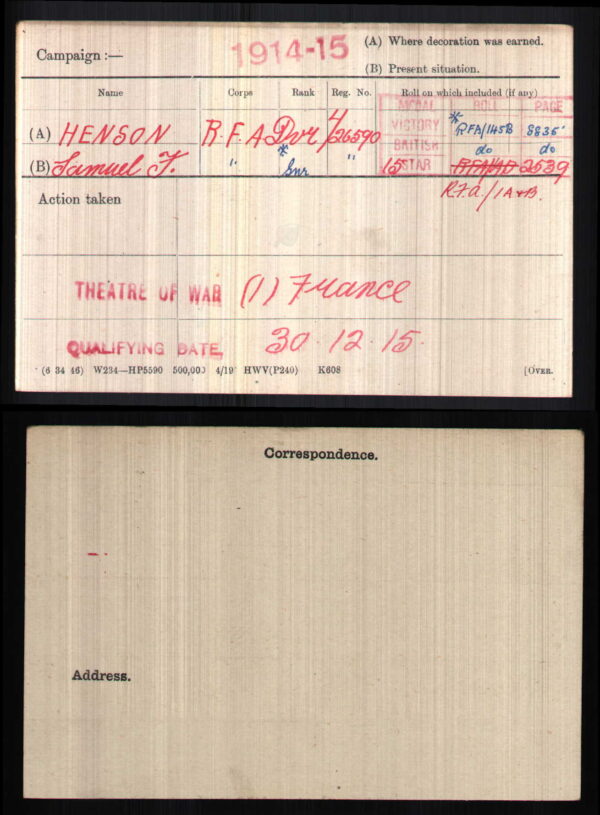 Campaign :— 1914-15 (A) Where decoration was earned.
(B) Present situation.
Name Corps Rank Reg. No. Roll on which included (if any)
MEDAL ROLL PAGE
(A) HENSON R.F.A Dvr 4/26590 VICTORY * RFA/145B 8835
(B) Samuel F. " * Gnr " BRITISH do do
15 STAR 2539
Action taken R.F.A./1A&B.
THEATRE OF WAR (1) France
QUALIFYING DATE 30. 12. 15.
(6 34 46) W234—HP5590 500,000 4/19 HWV(P240) K608 [OVER.
Correspondence.
Address.